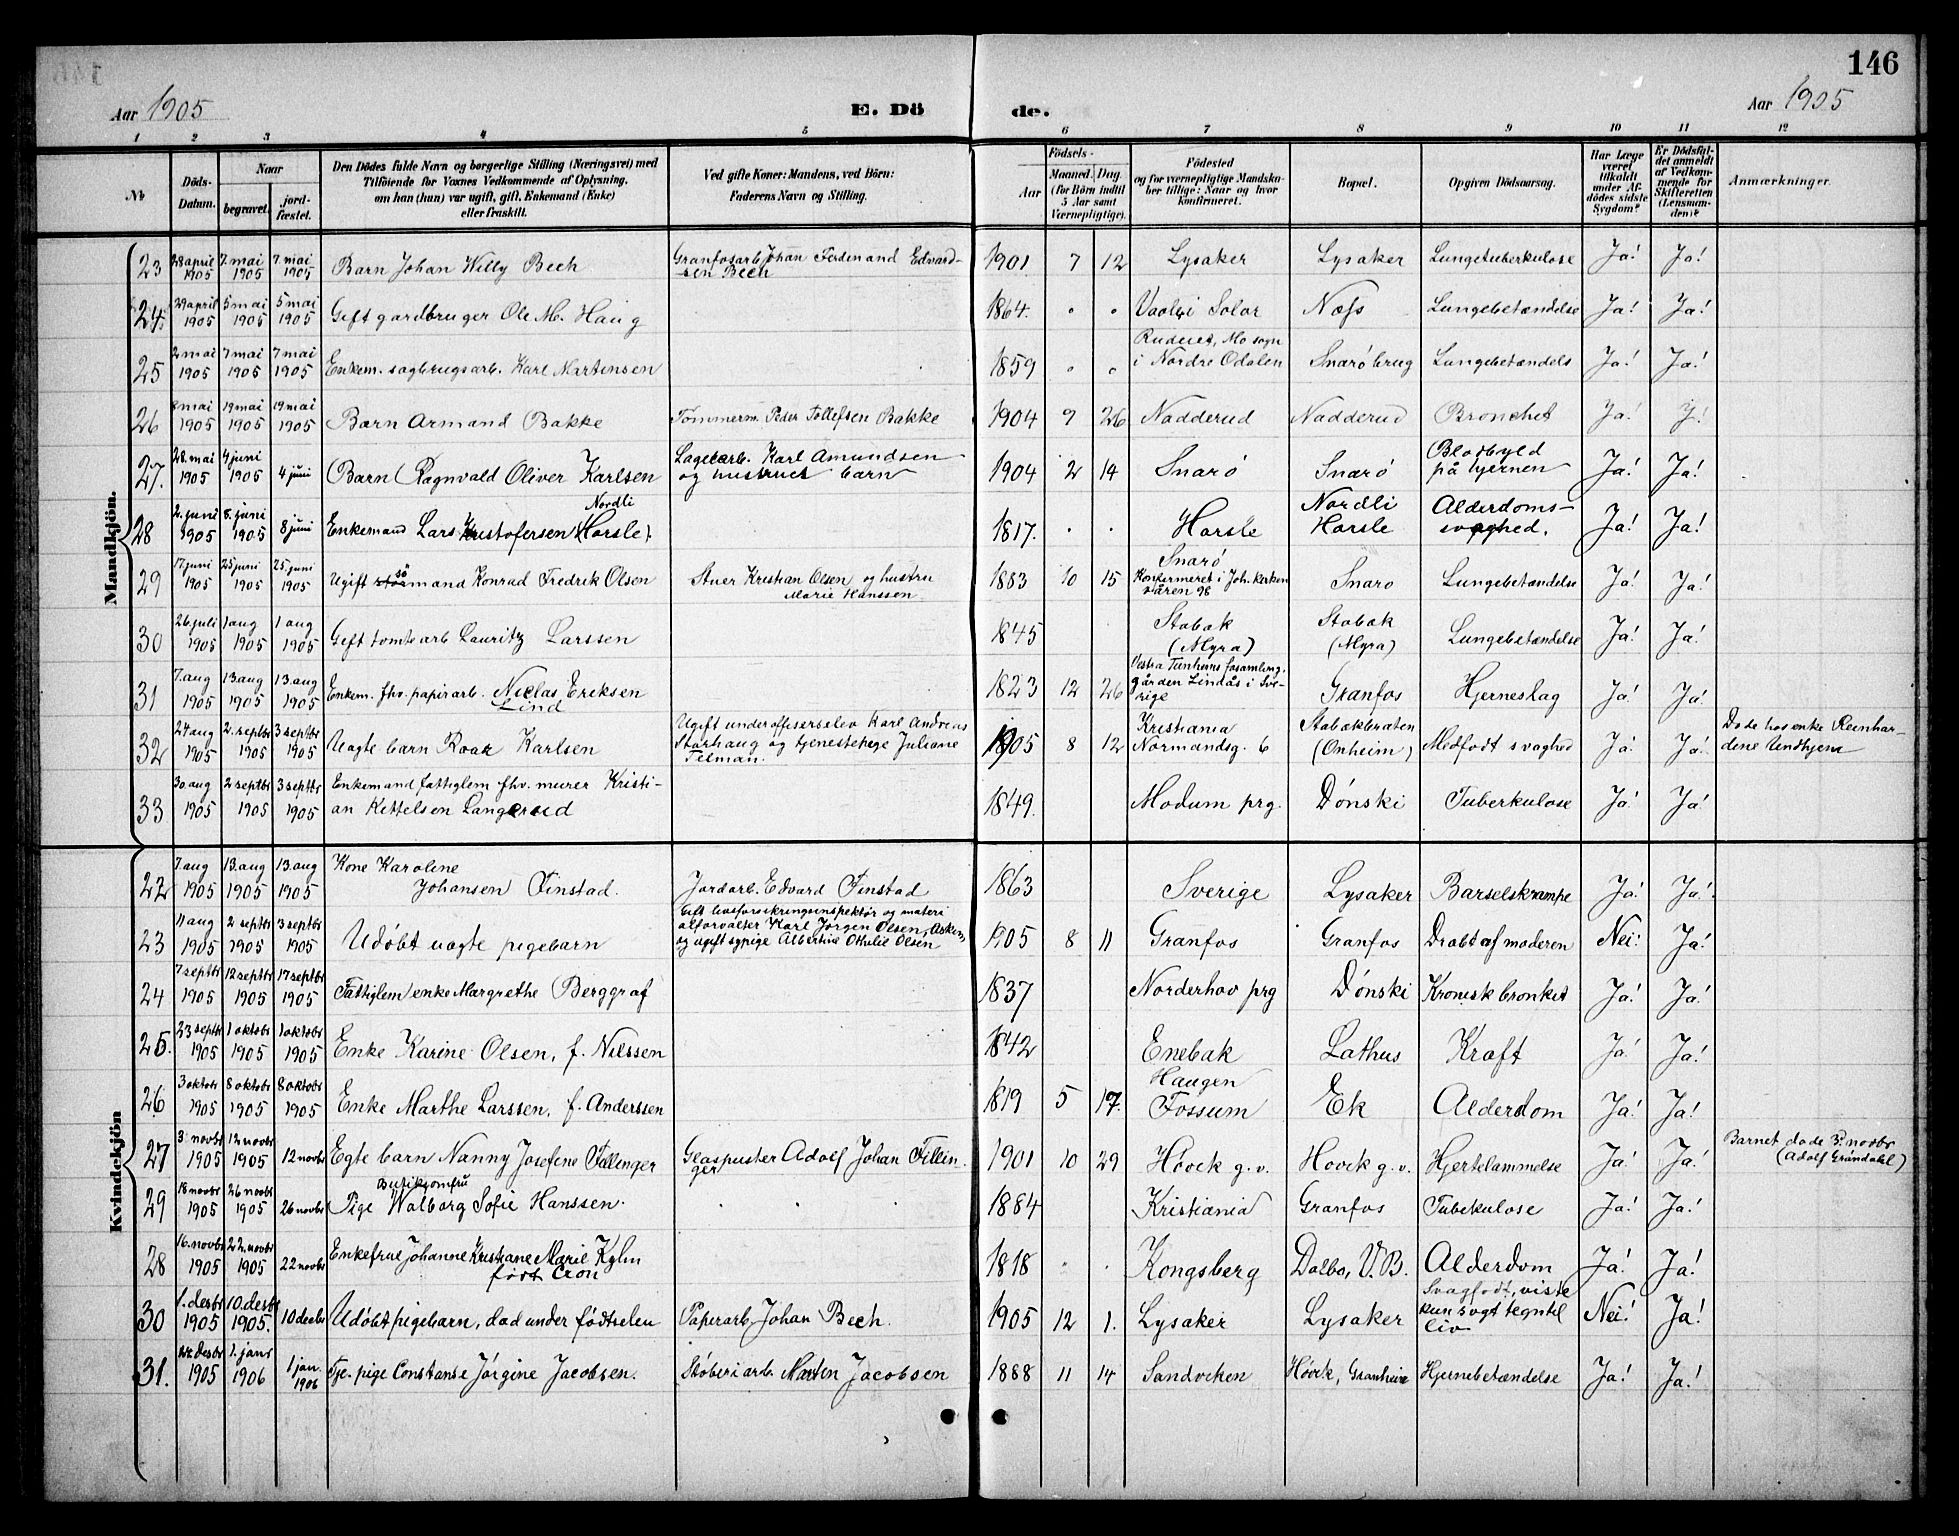 146
Aar 1905
E. Döde.
Aar 1905
1 2 3 4 5 6 7 8 9 10 11 12
No
Döds-Datum.
Naar
begravet.
jord-fæstet.
Den Dödes fulde Navn og borgerlige Stilling (Næringsvei) med
Tilföiende for Voxnes Vedkommende af Oplysning,
om han (hun) var ugift, gift, Enkemand (Enke)
eller fraskilt.
Ved gifte Koner: Mandens, ved Börn:
Faderens Navn og Stilling.
Födsels-
Aar
Maaned. Dag.
(for Börn indtil
5 Aar samt
Værnepligtige).
Födested
og for værnepligtige Mandska-
ber tillige: Naar og hvor
konfirmeret.
Bopæl.
Opgiven Dödsaarsag.
Har Læge
været
tilkaldt
under Af-
dödes sidste
Sygdom?
Er Dödsfal-
det anmeldt
af Vedkom-
mende for
Skifteretten
(Lensman-
den)?
Anmærkninger.
Mandkjön.
23 28 april 1905 7. mai 1905 7. mai 1905 Barn Johan Willy Bech Granfosarb. Johan Ferdinand Edvard-
sen Bech 1901 7 12 Lysaker Lysaker Lungetuberkulose Ja! Ja!
24 29 april 1905 5 mai 1905 5 mai 1905 Gift gardbruger Ole M. Haug 1864. " " Vaaler i Solør Næss Lungebetændelse Ja! Ja!
25 2 mai 1905 7 mai 1905 7 mai 1905 Enkem. sagbrugsarb. Karl Martinsen 1859 " " Ruderet, Mo sogn
i Nordre Odalen Snarøbrug Lungebetændels Ja! Ja!
26 mai 1905 19 mai 1905 19 mai 1905 Barn Armand Bakke Tømmerm. Peder Tollefsen Bakke 1904 9 26 Nadderud Nadderud Bronchet Ja! J!
27. 28. mai 1905 4 juni 1905 4 juni Barn Ragnvald Oliver Karlsen Lagerarb. Karl Amundsen
og hustrues barn 1904 2 14 Snarø Snarø Blodbyld
på hjernen Ja! Ja!
28 2. juni 1905 8. juni 1905 8 juni Enkemand Lars Kristofersen Nordli (Horsle). 1817. . . Horsle Nordli
Horsle Alderdoms-
svaghed. Ja! Ja!
29 17. juni 1905 25 juni 1905 25. juni 1905 Ugift sømand Konrad Fredrik Olsen Stuer Kristian Olsen og hustru
Marie Hanssen 1883 10 15 Snarø
Konfirmeret i Joh. kirken
våren 98 Snarø Lungebetændelse Ja! Ja!
30 26 juli 1905 1 aug 1905 1 aug 1905 Gift tomtearb Lauritz Larssen 1845 Stabæk
(Myra) Stabæk
(Myra) Lungebetændelse Ja! Ja!
31 7. aug 1905 13 aug 1905 13. aug 1905 Enkem. fhv. papirarb. Niclas Eriksen
Lind 1823 12 26 Vestra Tunhems forsamling.
gården Lindås i Sve-
rige Granfos Hjerneslag Ja! Ja!
32 24 aug 1905 2. septbr 1905 3 septbr 1905 Uægte barn Roar Karlsen Ugift underoffiserselev Karl Andreas
Storhaug og tjenestepige Juliane
Telman. 1905 8 12 Kristiania
Normandsg. 6 Stabækbraten
(Onheim) Medfødt svaghed Ja! Ja! Døde hos enke Reinhar-
dene Undhjem
33 30 aug 1905 2 septbr 1905 3 septbr 1905 Enkemand fattiglem fhv. murer Kristi-
an Kettelsen Langerud 1849. Modum prg. Dønski Tuberkulose Ja! Ja!
Kvindekjön
22 7. aug 1905 13 aug 1905 13. aug 1905 Kone Karolene
Johansen Finstad. Jordarb. Edvard Finstad 1863 Sverige Lysaker Barselskrampe Ja! Ja!
23 11 aug 1905 2 septbr 1905 3 septbr 1905 Udøbt uægte pigebarn Gift livsforsikringsinspektør og materi
alforvalter Karl Jørgen Olsen, Asker,
og ugift sypige Albertine Othilie Olsen 1905 8 11 Granfos Granfos Dræbt af moderen Nei! Ja!
24 7 septbr 1905 12 septbr 1905 17 septbr 1905 Fattiglem enke Margrethe Berggraf 1837 Norderhov prg Dønski Kronisk bronket Ja! Ja!
25. 23 septbr 1905 1 oktobr 1905 1 oktobr 1905 Enke Karine Olsen, f. Nilssen 1842 Enebak Lathus Kræft Ja! Ja!
26 3 oktobr 1905 8 oktobr 1905 8 oktobr 1905 Enke Marthe Larssen, f. Anderssen 1819 5 17. Haugen
Fossum Ek Alderdom Ja! Ja!
27 3. novbr 1905 12 novbr 1905 12 novbr Egte barn Nanny Josefine Fillinger Glaspuster Adolf Johan Fillin-
ger 1901 10 29 Høvik g.v. Høvik g.v. Hjertelammelse Ja! Ja! Barnet døde 3. novbr
(Adolf Grøndahl)
29 18 novbr 1905 26 novbr 1905 26 novbr Butikjomfru
Pige Walborg Sofie Hanssen. 1884 Kristiania Granfos Tubekulose Ja! Ja!
28 16. novbr 1905 22. novbr 1905 22 novbr Enkefrue Johanne Kristiane Marie Kylm
født Cron 1818 " " Kongsberg Dalbo, V.B. Alderdom Ja! Ja!
30 1. desbr 1905 10. desbr 1905. 10 decbr Udøbt pigebarn, død under fødselen Papirarb. Johan Bech. 1905 12 1. Lysaker Lysaker Svagfødt, viste
kun svagt tegn til
liv Nei! Ja!
31. desbr 1905 1. janr 1906 1 jan. 1906 Tje. pige Constanse Jørgine Jacobsen. Støberiarb. Morten Jacobsen 1888 11 14 Sandviken Høvik, Granheim Hjernebetændelse Ja! Ja!